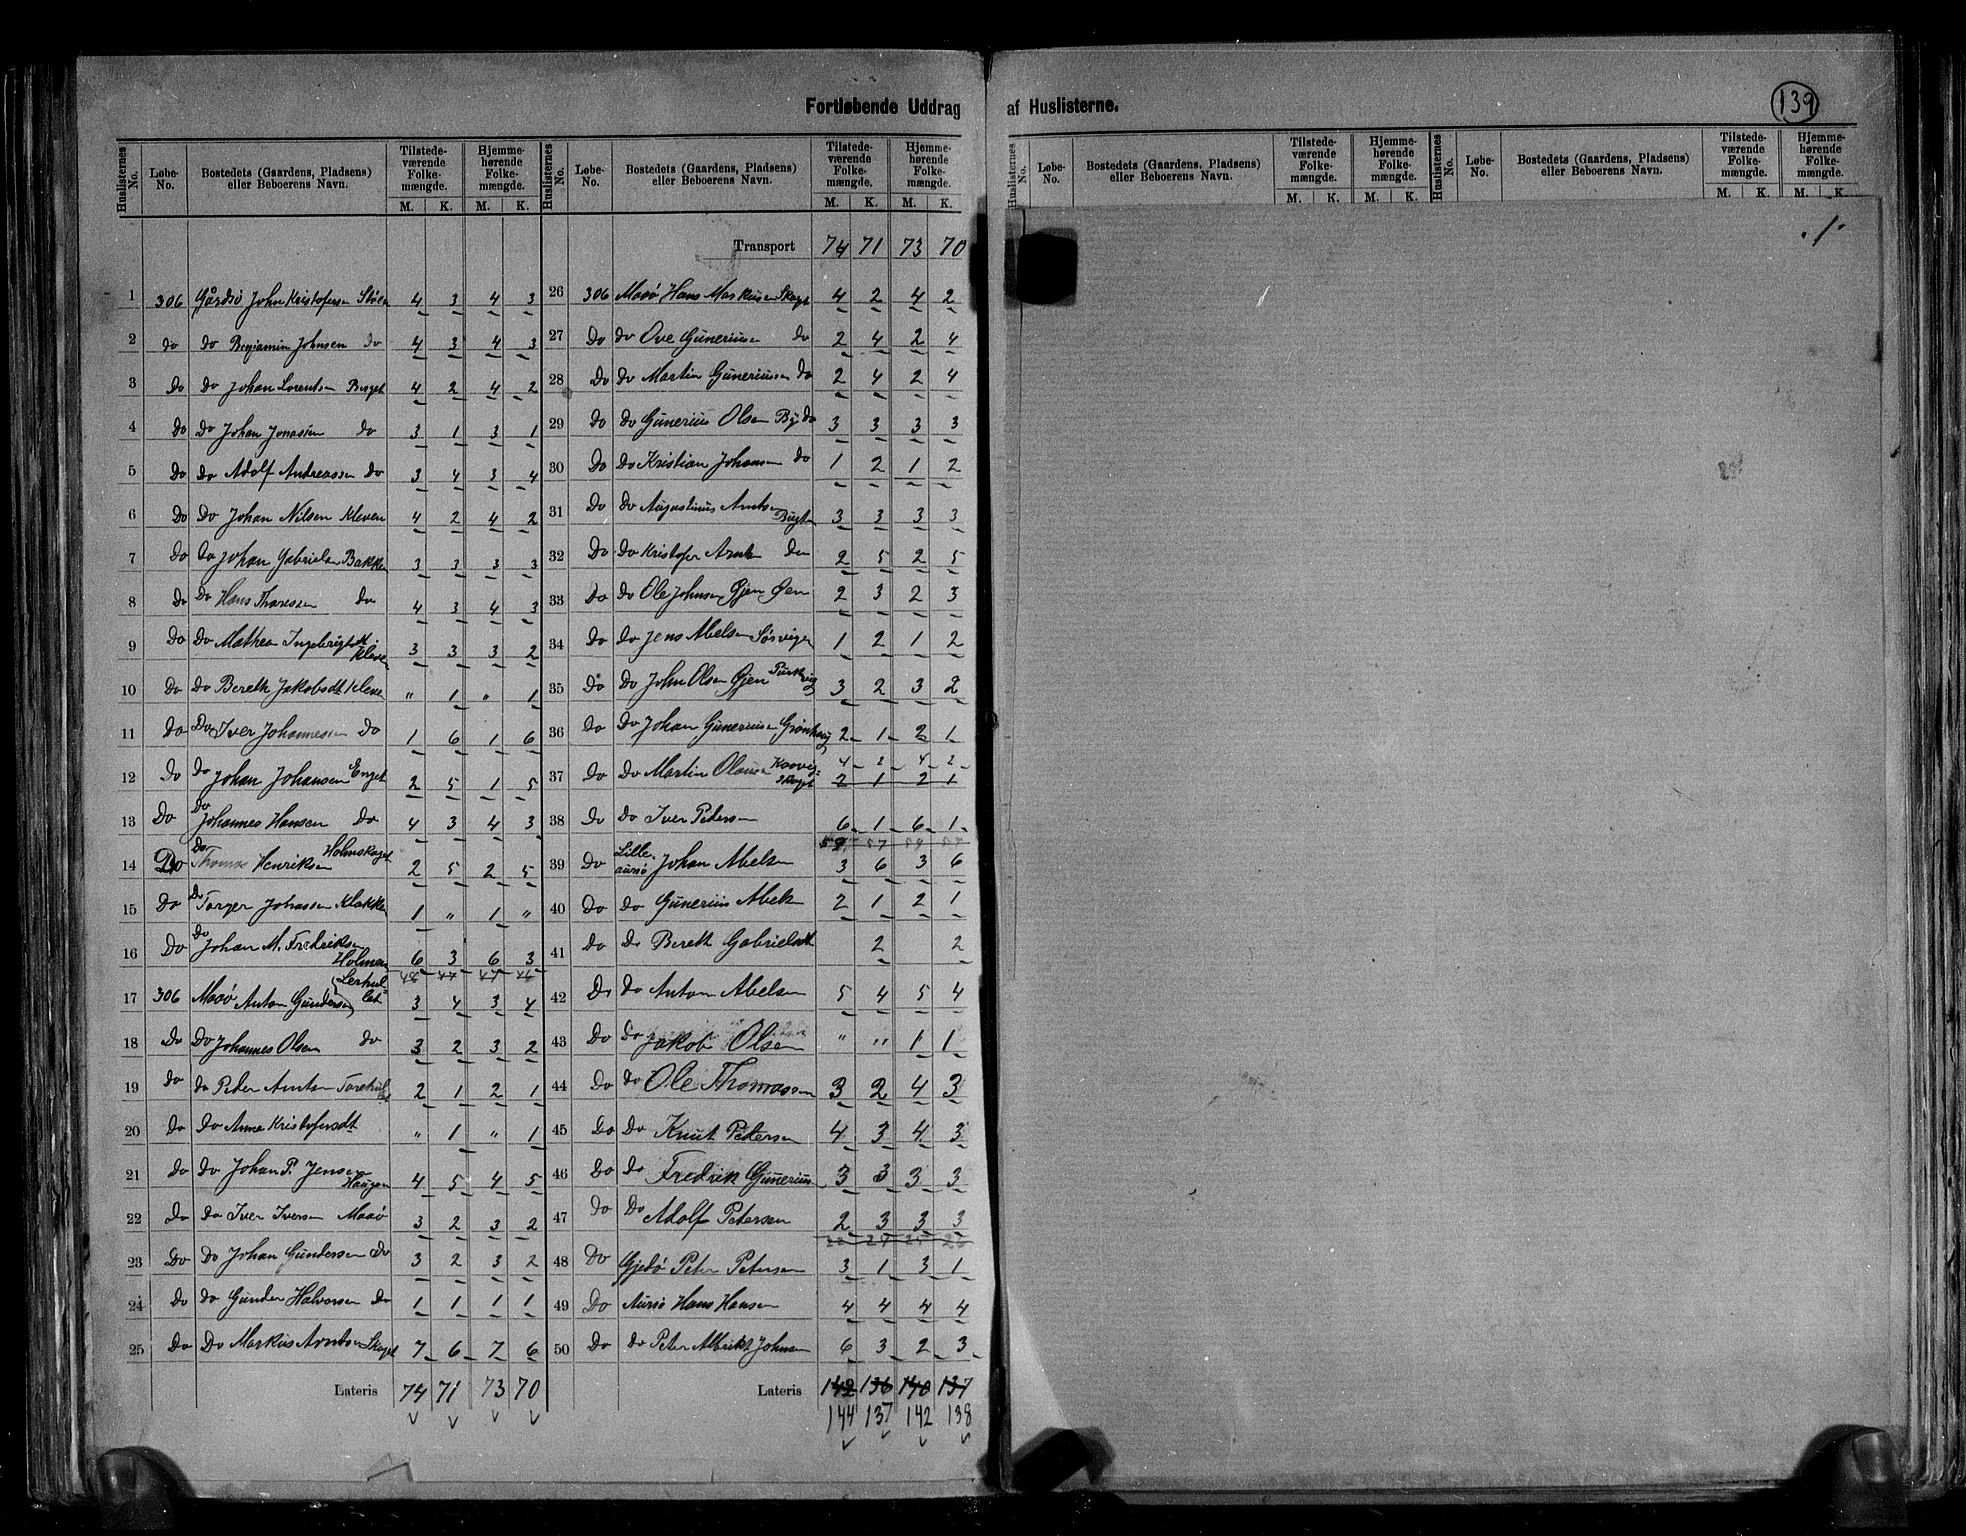 Fortløbende Uddrag af Huslisterne.
139
Huslisternes No. Løbe-No. Bostedets (Gaardens, Pladsens) eller Beboerens Navn. Tilstedeværende Folkemængde. M. K. Hjemmehørende Folkemængde. M. K.
1 306 Gårdsø John Kristofersen Støen 4 3 4 3
2 do do Benjamin Johnsen do 4 3 4 3
3 Do Do Johan Lorentsen Berget 4 2 4 2
4 Do Do Johan Jonassen do 3 1 3 1
5 Do Do Adolf Andreassen do 3 4 3 4
6 Do Do Johan Nilsen Kleven 4 2 4 2
7 Do Do Johan Gabrielsen Bakken 3 3 3 3
8 Do Do Hans Tharessen do 4 3 4 3
9 Do Do Mathea Ingebrigtsdt Kleven 3 3 3 2
10 Do Do Bereth Jakobsdt Kleven " 1 " 1
11 Do Do Iver Johannessen Do 1 6 1 6
12 Do Do Johan Johansen Enget 2 5 1 5
13 Do Do Johannes Hansen Do 4 3 4 3
14 Do Do Thomas Henriksen Holmskaget 2 5 2 5
15 Do Do Torger Johnssen Klakken 1 " 1 "
16 Do Do Johan M. Fredriksen Holmen 6 3 6 3
17 306 Maaø Anton Gundersen (Lerhullet) 3 4 3 4
18 Do Do Johannes Olsen do 3 2 3 2
19 do do Peter Arntsen 2 1 2 1
20 Do Do Anne Kristofersdt " 1 " 1
21 Do Do Johan P. Jensen Haugen 4 5 4 5
22 Do Do Iver Iversen Maaø 3 2 3 2
23 Do Do Johan Gundersen Do 3 2 3 2
24 Do Do Gunder Halvorsen Do 1 1 1 1
25 Do Do Markus Arntsen Skaget 7 6 7 6
Lateris 74 71 73 70
Huslisternes No. Løbe-No. Bostedets (Gaardens, Pladsens) eller Beboerens Navn. Tilstedeværende Folkemængde. M. K. Hjemmehørende Folkemængde. M. K.
Transport 74 71 73 70
26 306 Maaø Hans Markusen Skaget 4 2 4 2
27 Do do Ove Guneriusen do 2 4 2 4
28 Do Do Martin Guneriussen do 2 4 2 4
29 Do Do Gunerius Olsen 3 3 3 3
30 Do Do Kristian Johansen do 1 2 1 2
31 Do Do Augustinus Arntsen Bugten 3 3 3 3
32 Do Do Kristofer Arntsen 2 5 2 5
33 Do Do Ole Johnsen Gjen Øen 2 3 2 3
34 Do Do Jens Abelsen Sørvigen 1 2 1 2
35 Do Do John Olsen Gjen 3 2 3 2
36 Do Do Johan Guneriusen 2 1 2 1
37 Do Do Martin Olausen 4 2 4 2
2 1 2 1
38 Do Do Iver Petersen 6 1 6 1
59 57 59 57
39 Do Lilleaursø Johan Abelsen 3 6 3 6
40 Do Do Gunerius Abelsen 2 1 2 1
41 Do Do Bereth Gabrielsdt 2 2
42 Do Do Anton Abelsen 5 4 5 4
43 Do Do Jakob Olsen " " 1 1
44 Do Do Ole Thomassen 3 2 4 3
45 Do Do Knut Petersen 4 3 4 3
46 Do Do Fredrik Gunerius 3 3 3 3
47 Do Do Adolf Petersen 2 3 3 3
48 Do Gjedø Peter Petersen 3 1 3 1
49 Do Aursø Hans Hansen 4 4 4 4
50 Do Do Peter Albrikt Johnsen 6 3 2 3
Lateris 142 136 140 137
144 137 142 138
Huslisternes No. Løbe-No. Bostedets (Gaardens, Pladsens) eller Beboerens Navn. Tilstedeværende Folkemængde. M. K. Hjemmehørende Folkemængde. M. K.
Huslisternes No. Løbe-No. Bostedets (Gaardens, Pladsens) eller Beboerens Navn. Tilstedeværende Folkemængde. M. K. Hjemmehørende Folkemængde. M. K.
.1.